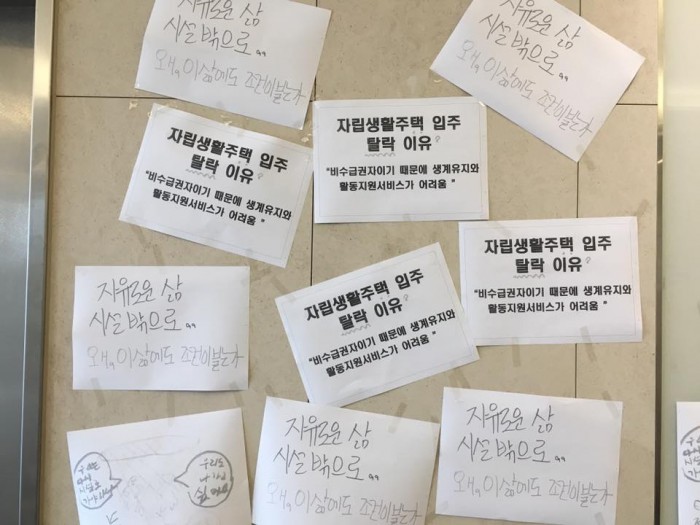 자유로운 삶
시설 밖으로
왜, 이삶에도 조건이붙는가
자유로운 삶
시설 밖으로
왜, 이삶에도 조건이붙는가
자립생활주택 입주
탈락 이유
"비수급권자이기 때문에 생계유지와
활동지원서비스가 어려움 "
자립생활주택 입주
탈락 이유
"비수급권자이기 때문에 생계유지와
활동지원서비스가 어려움 "
자립생활주택 입주
탈락 이유
"비수급권자이기 때문에 생계유지와
활동지원서비스가 어려움 "
자립생활주택 입주
탈락 이유
"비수급권자이기 때문에 생계유지와
활동지원서비스가 어려움 "
자유로운 삶
시설 밖으로
왜, 이삶에도 조건이붙는가
자유로운 삶
시설 밖으로
왜, 이삶에도 조건이붙는가
자유로운 삶
시설 밖으로
왜, 이삶에도 조건이붙는가
우리도